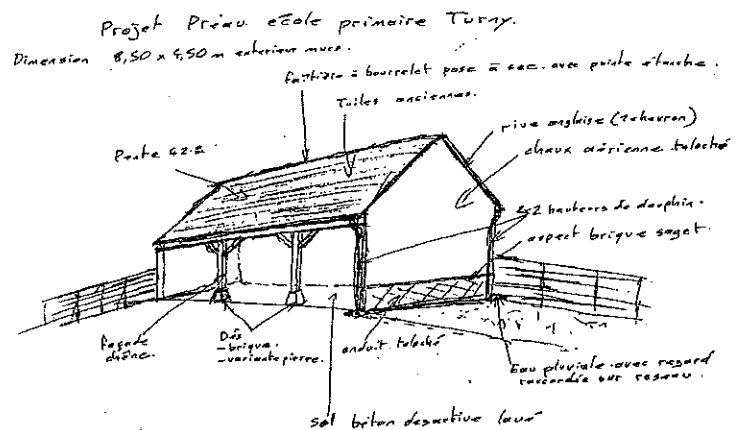 Projet Préau école primaire Turny.
Dimension 8,50 x 4,50 m exterieur murs.
faîtière à bourrelet pose à sec avec pointe étanche.
Tuiles anciennes.
rive anglaise (1 chevron)
chaux aérienne taloché
Pente 42.2
2 hauteurs de dauphin.
aspect brique
façade
chêne.
Dés
- brique.
- variante pierre.
enduit taloché
Eau pluviale avec regard
raccordée sur reseau.
sol béton desactivé lavé